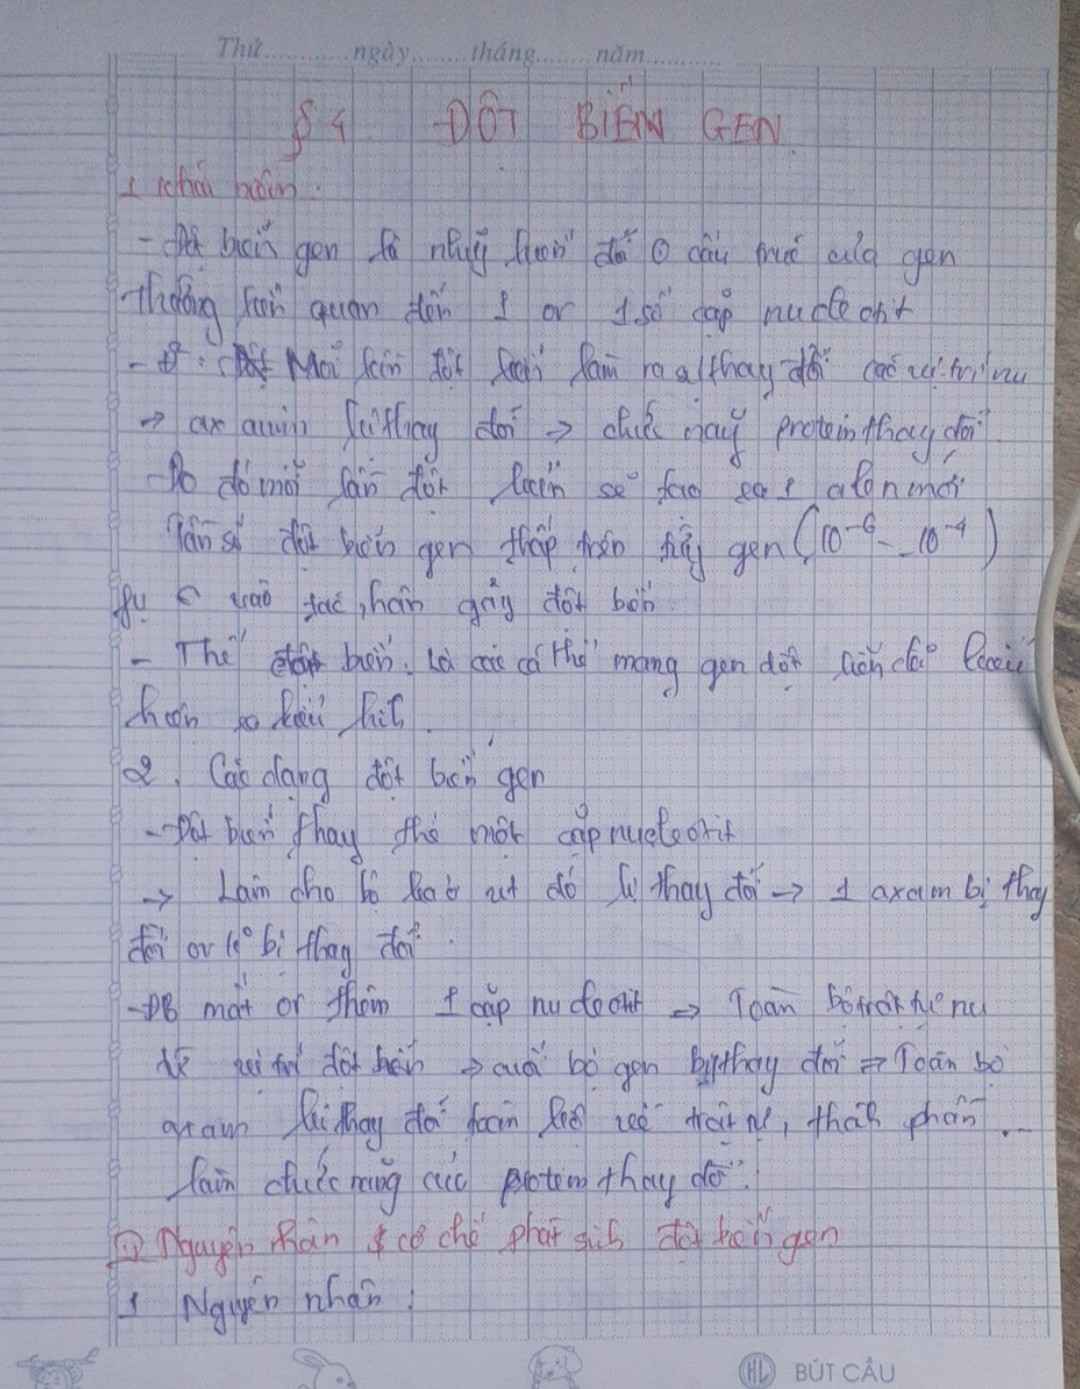 Thứ ngày tháng năm
§ 4 ĐỘT BIẾN GEN
1 khái niệm:
- Đột biến gen là những biến đổi ở cấu trúc của gen
thường liên quan đến 1 or 1 số cặp nucleotit
Mỗi lần đột biến làm thay đổi
→ ax amin bị thay đổi → chức năng protein thay đổi
Do đó mỗi lần đột biến sẽ tạo ra 1 alen mới
Tần số đột biến gen thấp trên gen (10⁻⁶ - 10⁻⁴)
vào tác nhân gây đột bến
- Thể biến. Là các cá thể mang gen đột biến
hiện ra kiểu hình
2. Các dạng đột biến gen
- Đột biến thay thế một cặp nucleotit
→ Làm cho bộ đó bị thay đổi → 1 axam bị thay
đổi or ko bị thay đổi.
- ĐB mất or thêm 1 cặp nucleotit → Toàn bộ nu
từ vị trí đột biến → bộ gen bị thay đổi → Toàn bộ
bị thay đổi thành phần ...
làm chức năng protein thay đổi.
Nguyên nhân & cơ chế phát sinh đột biến gen
1 Nguyên nhân:
HL BÚT CÂU